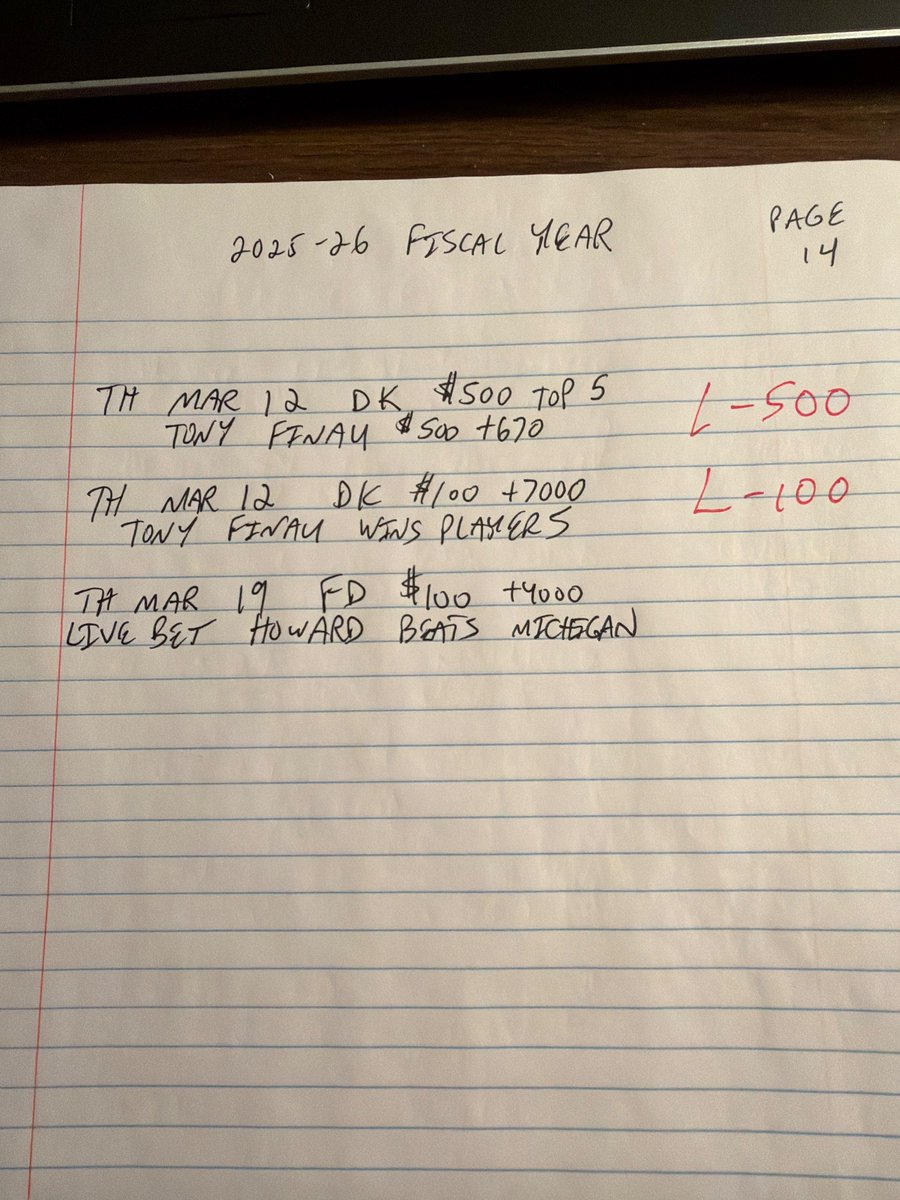 2025-26 FISCAL YEAR PAGE
14
TH MAR 12 DK $500 TOP 5 L -500
TONY FINAU $500 +670
TH MAR 12 DK $100 +7000 L -100
TONY FINAU WINS PLAYERS
TH MAR 19 FD $100 +4000
LIVE BET HOWARD BEATS MICHIGAN